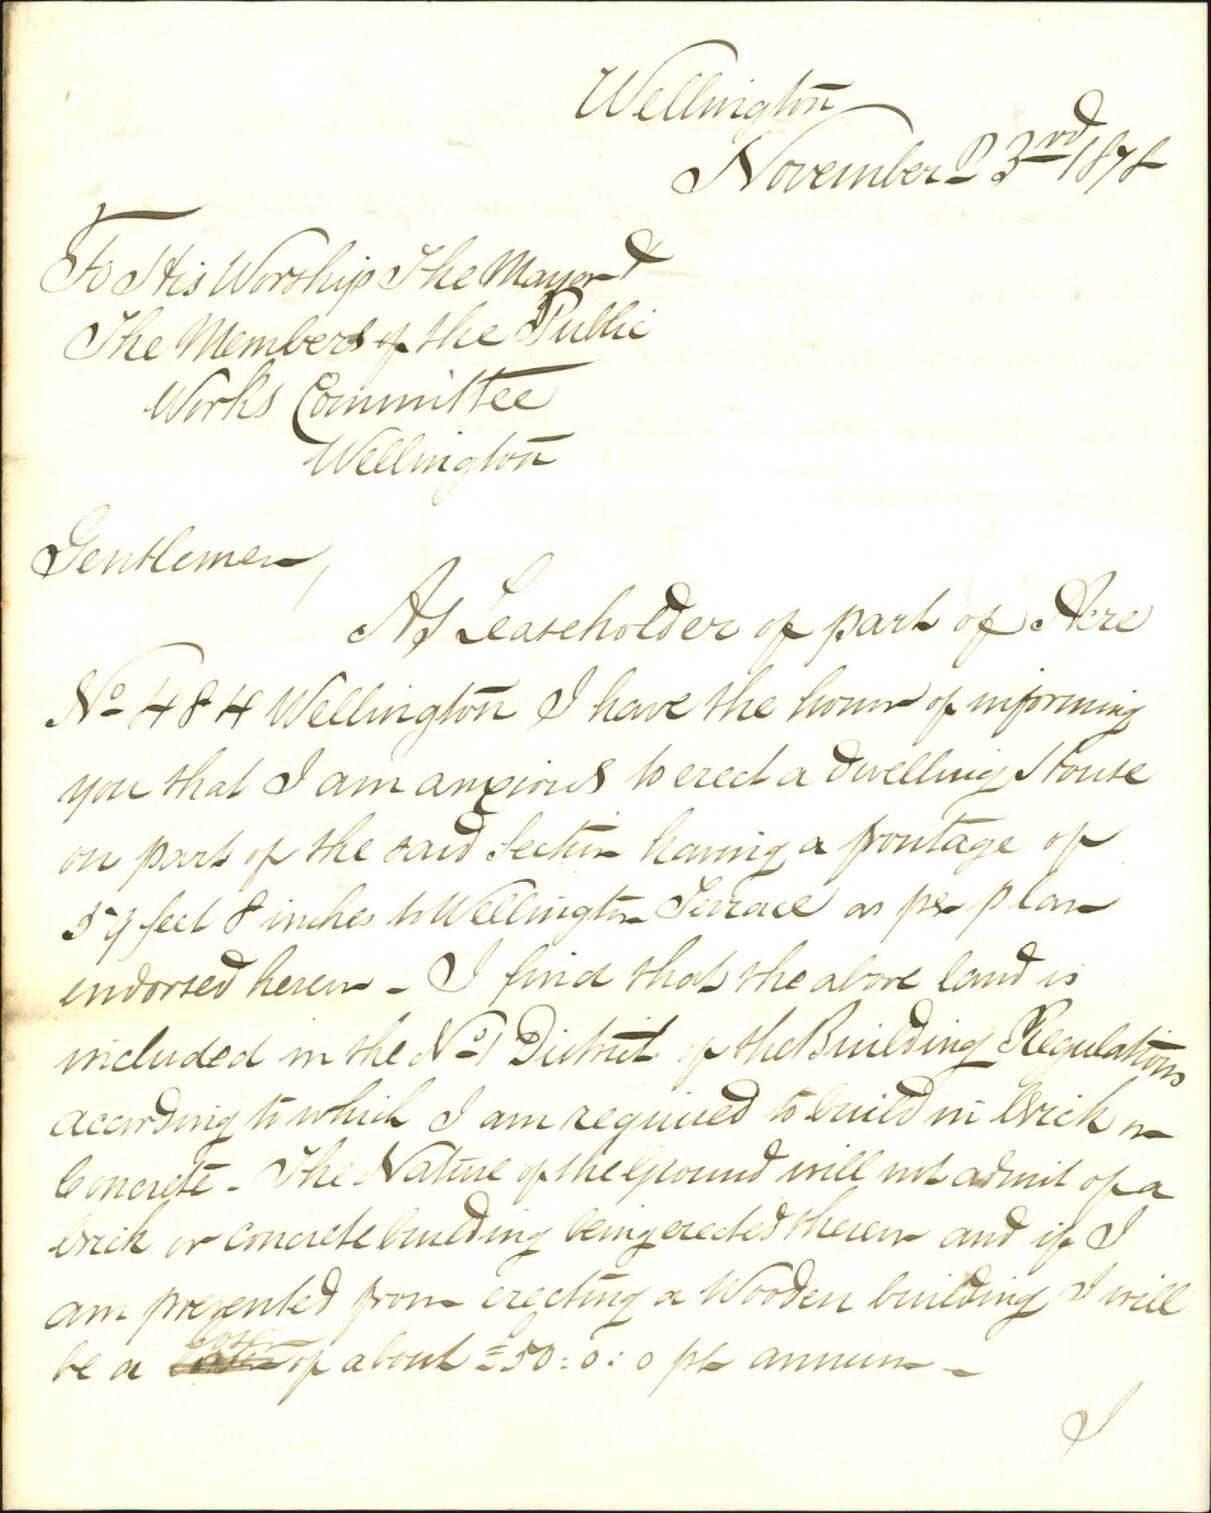 Wellington
November 23rd 1878
To His Worship The Mayor &
The Members of the Public
Works Committee
Wellington
Gentlemen,
As Leaseholder of part of Acre
No 484 Wellington I have the honor of informing
you that I am anxious to erect a dwelling House
on part of the said Section having a frontage of
59 feet 8 inches to Wellington Terrace as per plan
endorsed hereon - I find that the above land is
included in the No 1 District of the Building Regulations
according to which I am required to build in brick or
Concrete - The Nature of the Ground will not admit of a
brick or concrete building being erected thereon and if I
am prevented from erecting a Wooden building I will
be a loser of about £50:0:0 per annum -
I